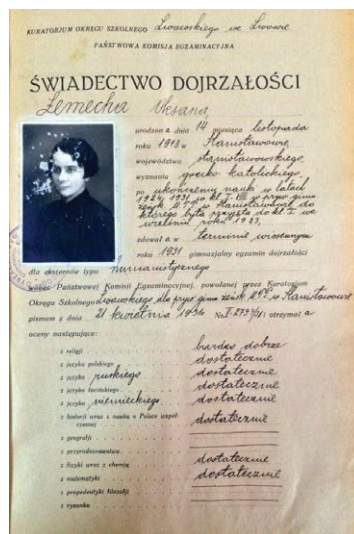 KURATORJUM OKRĘGU SZKOLNEGO Lwowskiego we Lwowie
PAŃSTWOWA KOMISJA EGZAMINACYJNA
ŚWIADECTWO DOJRZAŁOŚCI
Zemecha Oksana
urodzona dnia 14 miesiąca listopada
roku 1913 w Stanisławowie,
województwa stanisławowskiego,
wyznania grecko katolickiego,
po ukończeniu nauk w latach
1924-1931 w kl. I-VIII w pryw. gimn.
żeńsk. w Stanisławowie do
którego była przyjęta do kl. I we
wrześniu roku 1923,
zdawała w terminie wiosennym
roku 1931 gimnazjalny egzamin dojrzałości
dla eksternów typu humanistycznego
wobec Państwowej Komisji Egzaminacyjnej, powołanej przez Kuratorjum
Okręgu Szkolnego Lwowskiego dla pryw. gimn. żeńsk. w Stanisławowie
pismem z dnia 21 kwietnia 1931 otrzymała
oceny następujące:
z religji bardzo dobrze
z języka polskiego dostatecznie
z języka ruskiego dostatecznie
z języka łacińskiego dostatecznie
z języka niemieckiego dostatecznie
z historji wraz z nauką o Polsce współczesnej dostatecznie
z geografji
z przyrodoznawstwa
z fizyki wraz z chemją dostatecznie
z matematyki dostatecznie
z propedeutyki filozofji
z rysunku